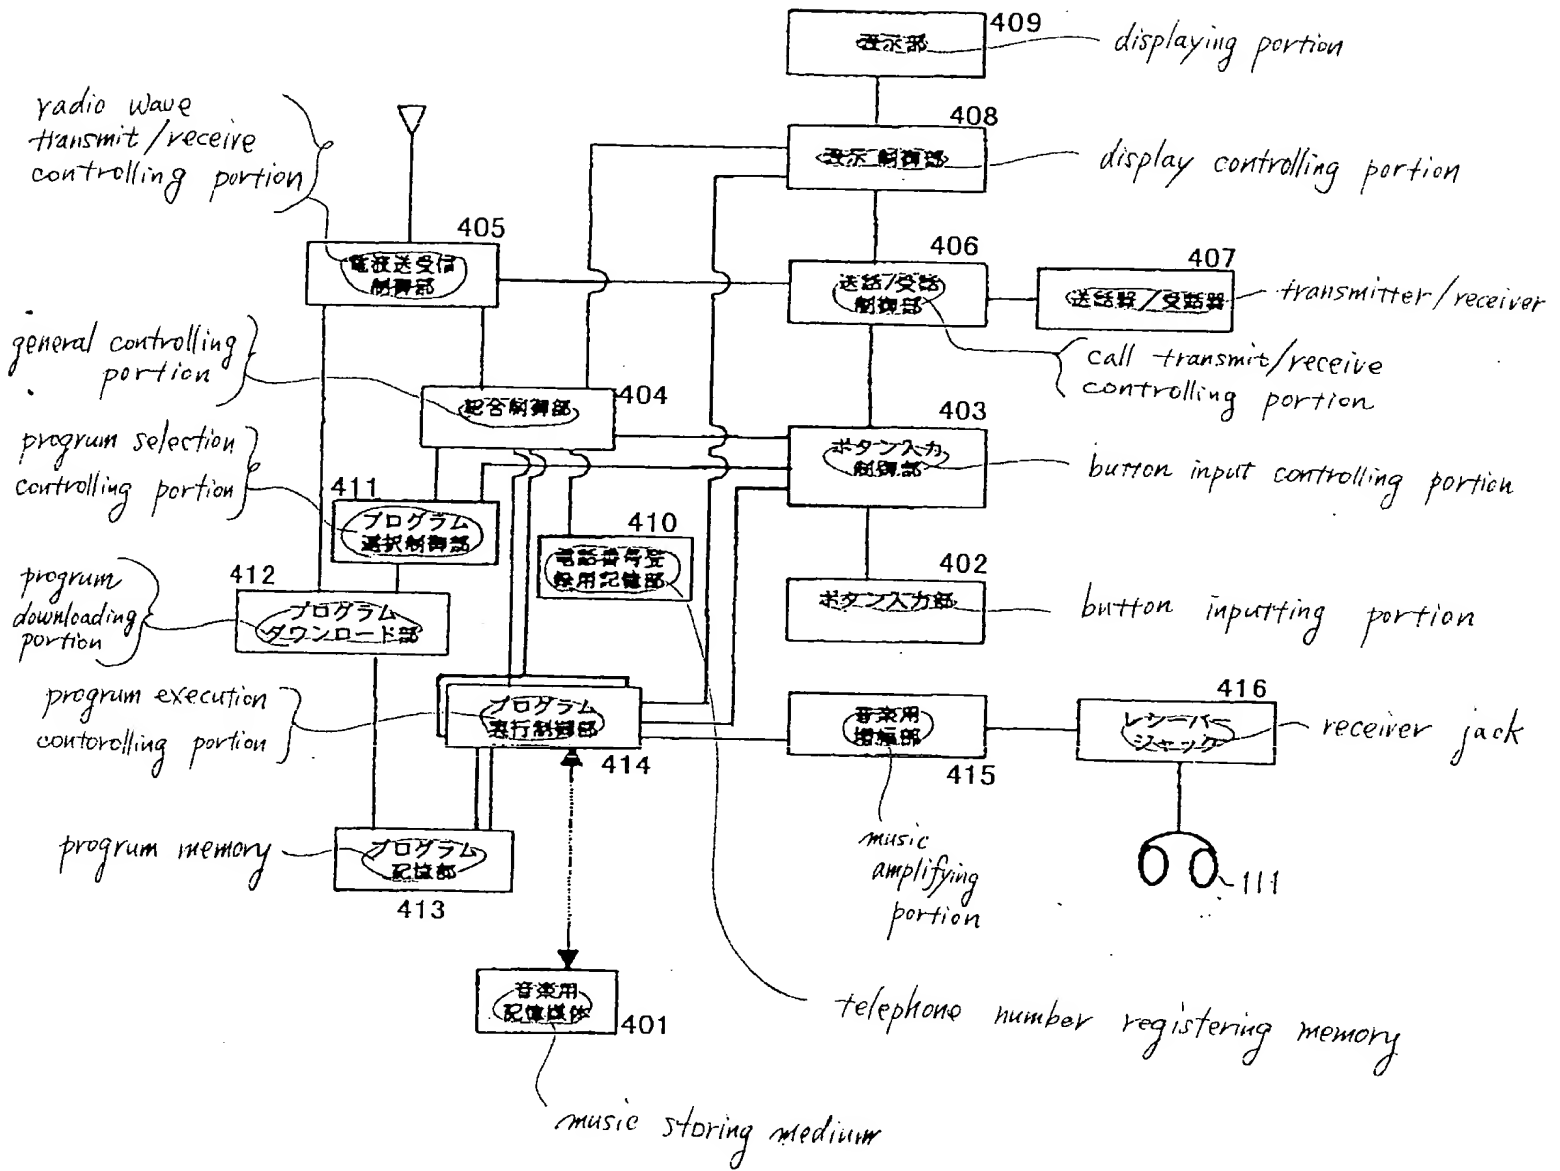 409
表示部
displaying portion
radio wave
transmit/receive
controlling portion
408
表示制御部
display controlling portion
405
電波送受信
制御部
406
送話/受話
制御部
407
送話器/受話器
transmitter/receiver
call transmit/receive
controlling portion
general controlling
portion
総合制御部
404
403
ボタン入力
制御部
button input controlling portion
progrum selection
controlling portion
411
プログラム
選択制御部
410
電話番号登
録用記憶部
402
ボタン入力部
button inputting portion
progrum
downloading
portion
412
プログラム
ダウンロード部
progrum execution
contorolling portion
プログラム
実行制御部
414
音楽用
増幅部
415
416
レシーバー
ジャック
receiver jack
music
amplifying
portion
111
progrum memory
プログラム
記憶部
413
音楽用
記憶媒体
401
telephone number registering memory
music storing medium